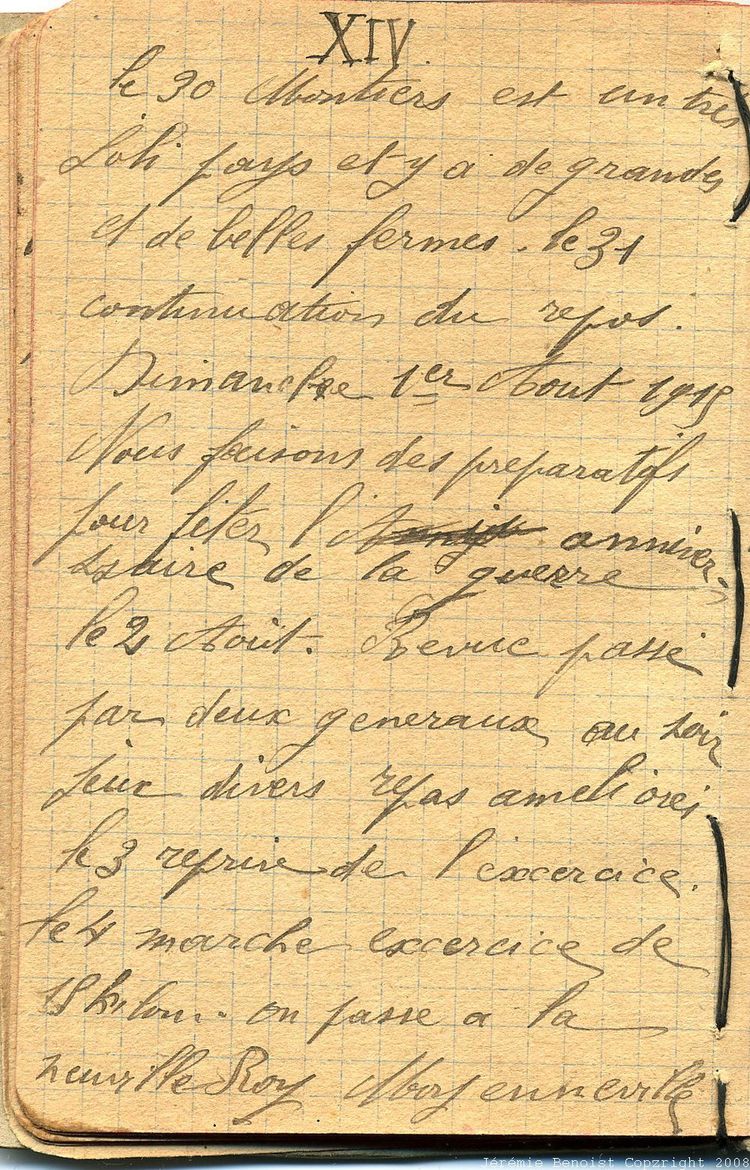 XIV
le 30 Montiers est un tres
Joli pays et y a de grandes
et de belles fermes. le 31
continuation du repos.
Dimanche 1er Aout 1915
Nous faisons des preparatifs
pour fêter l' anniver-
ssaire de la guerre
le 2 Aout. Revue passé
par deux generaux au soir
jeux divers repas amelioré,
le 3 reprise de l'excercice.
le 4 marche excercice de
18 kilom. on passe a la
neuville Roy Moyenneville
Jérémie Benoist Copzright 2008